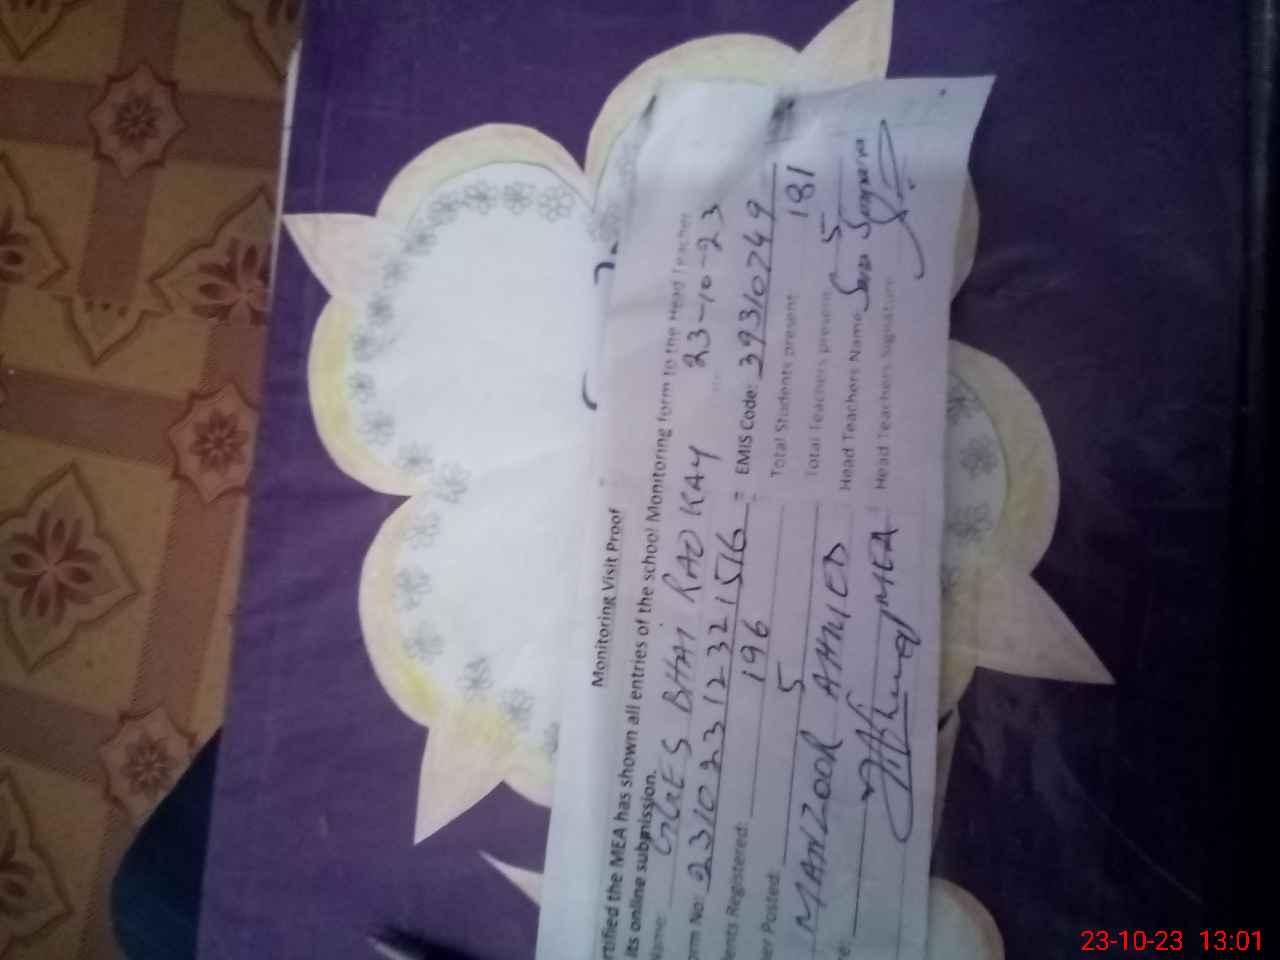 Monitoring Visit Proof
rtified the MEA has shown all entries of the school Monitoring form to the Head Teacher
its online submission.
Name: GGES BHAI RAO KAY 23-10-23
orm No: 23102312321516 = EMIS Code: 39310749
ents Registered: 196 Total Students present: 181
er Posted: 5 Total Teachers present: 5
MANZOOR AHMED Head Teachers Name
re: MEA Head Teachers Signature
23-10-23 13:01